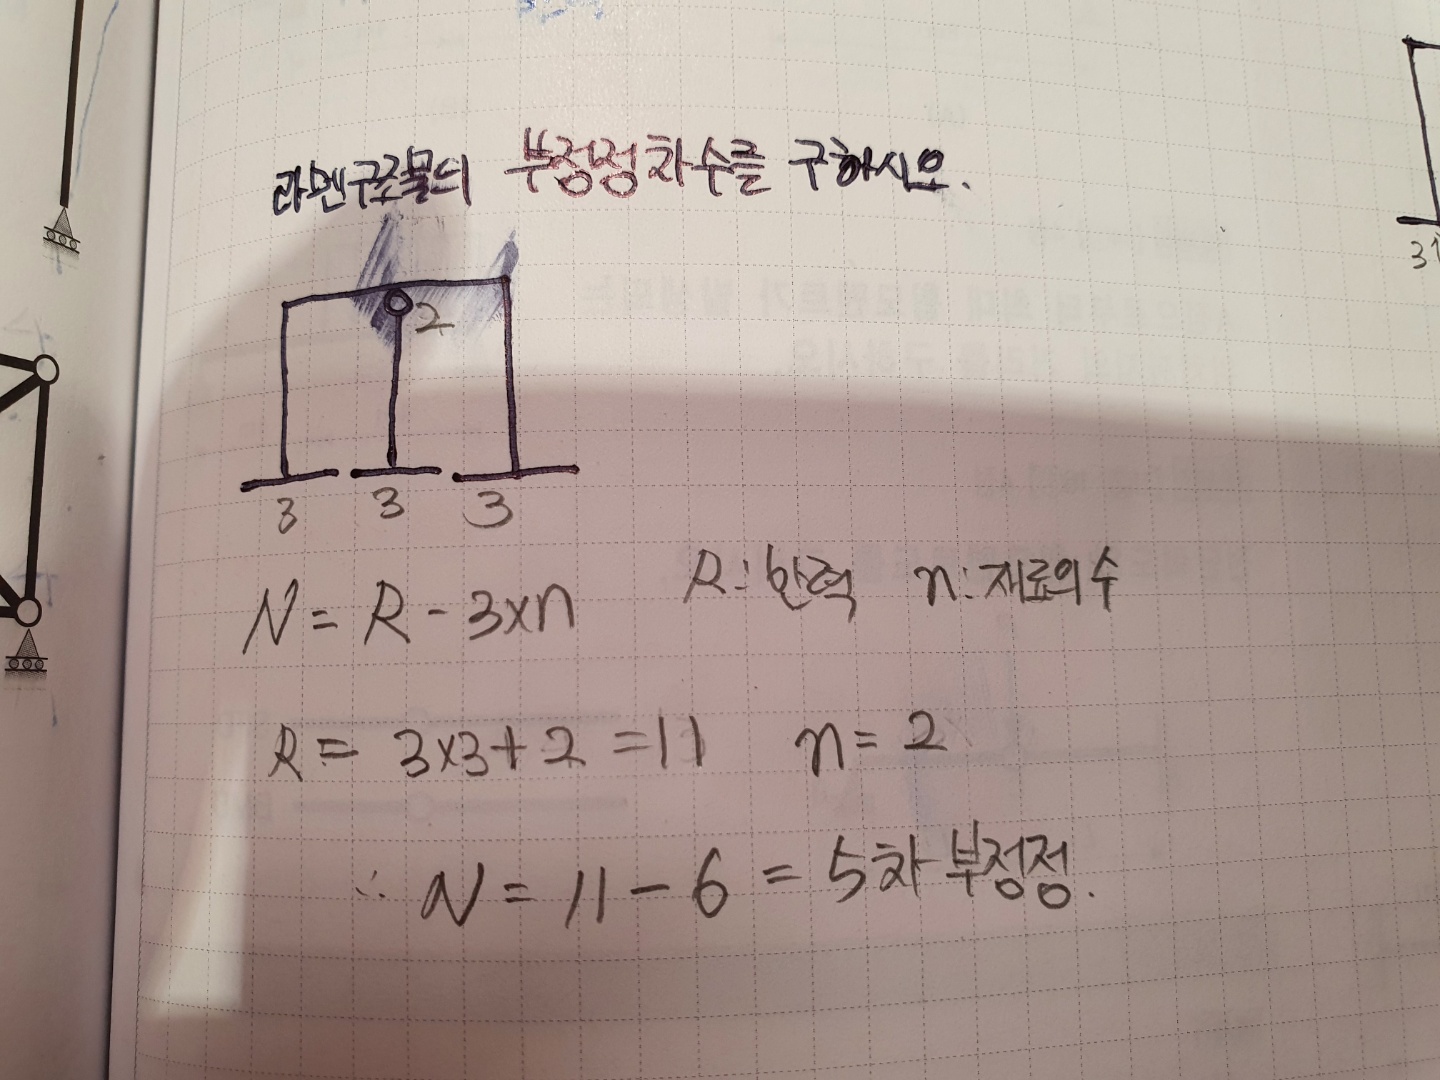 라멘구조물의 부정정차수를 구하시오.
2
3 3 3
N = R - 3×n R : 반력 n : 재료의 수
R = 3×3+2 = 11 n = 2
∴ N = 11 - 6 = 5차 부정정.